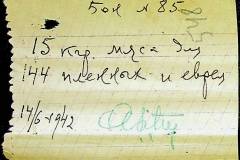 Бон № 85
548
15 кгр мяса для
144 пленных и евреев
14/6-1942